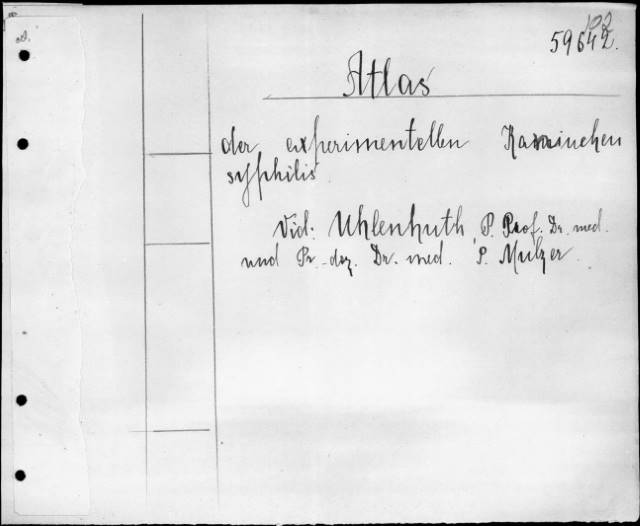 102
59642.
Atlas
der experimentellen Kaninchen
syphilis
Vid: Uhlenhuth, P. Prof. Dr. med.
und Pr.-doz. Dr. med. P. Mulzer